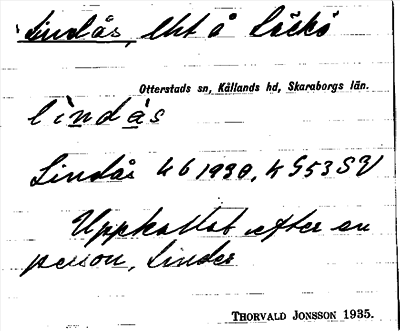 Lindås, lht å Läckö
Otterstads sn, Kållands hd, Skaraborgs län.
lìndås
Lindås h 6 1930, k G53 SV
Uppkallat efter en
person, Linder
THORVALD JONSSON 1935.